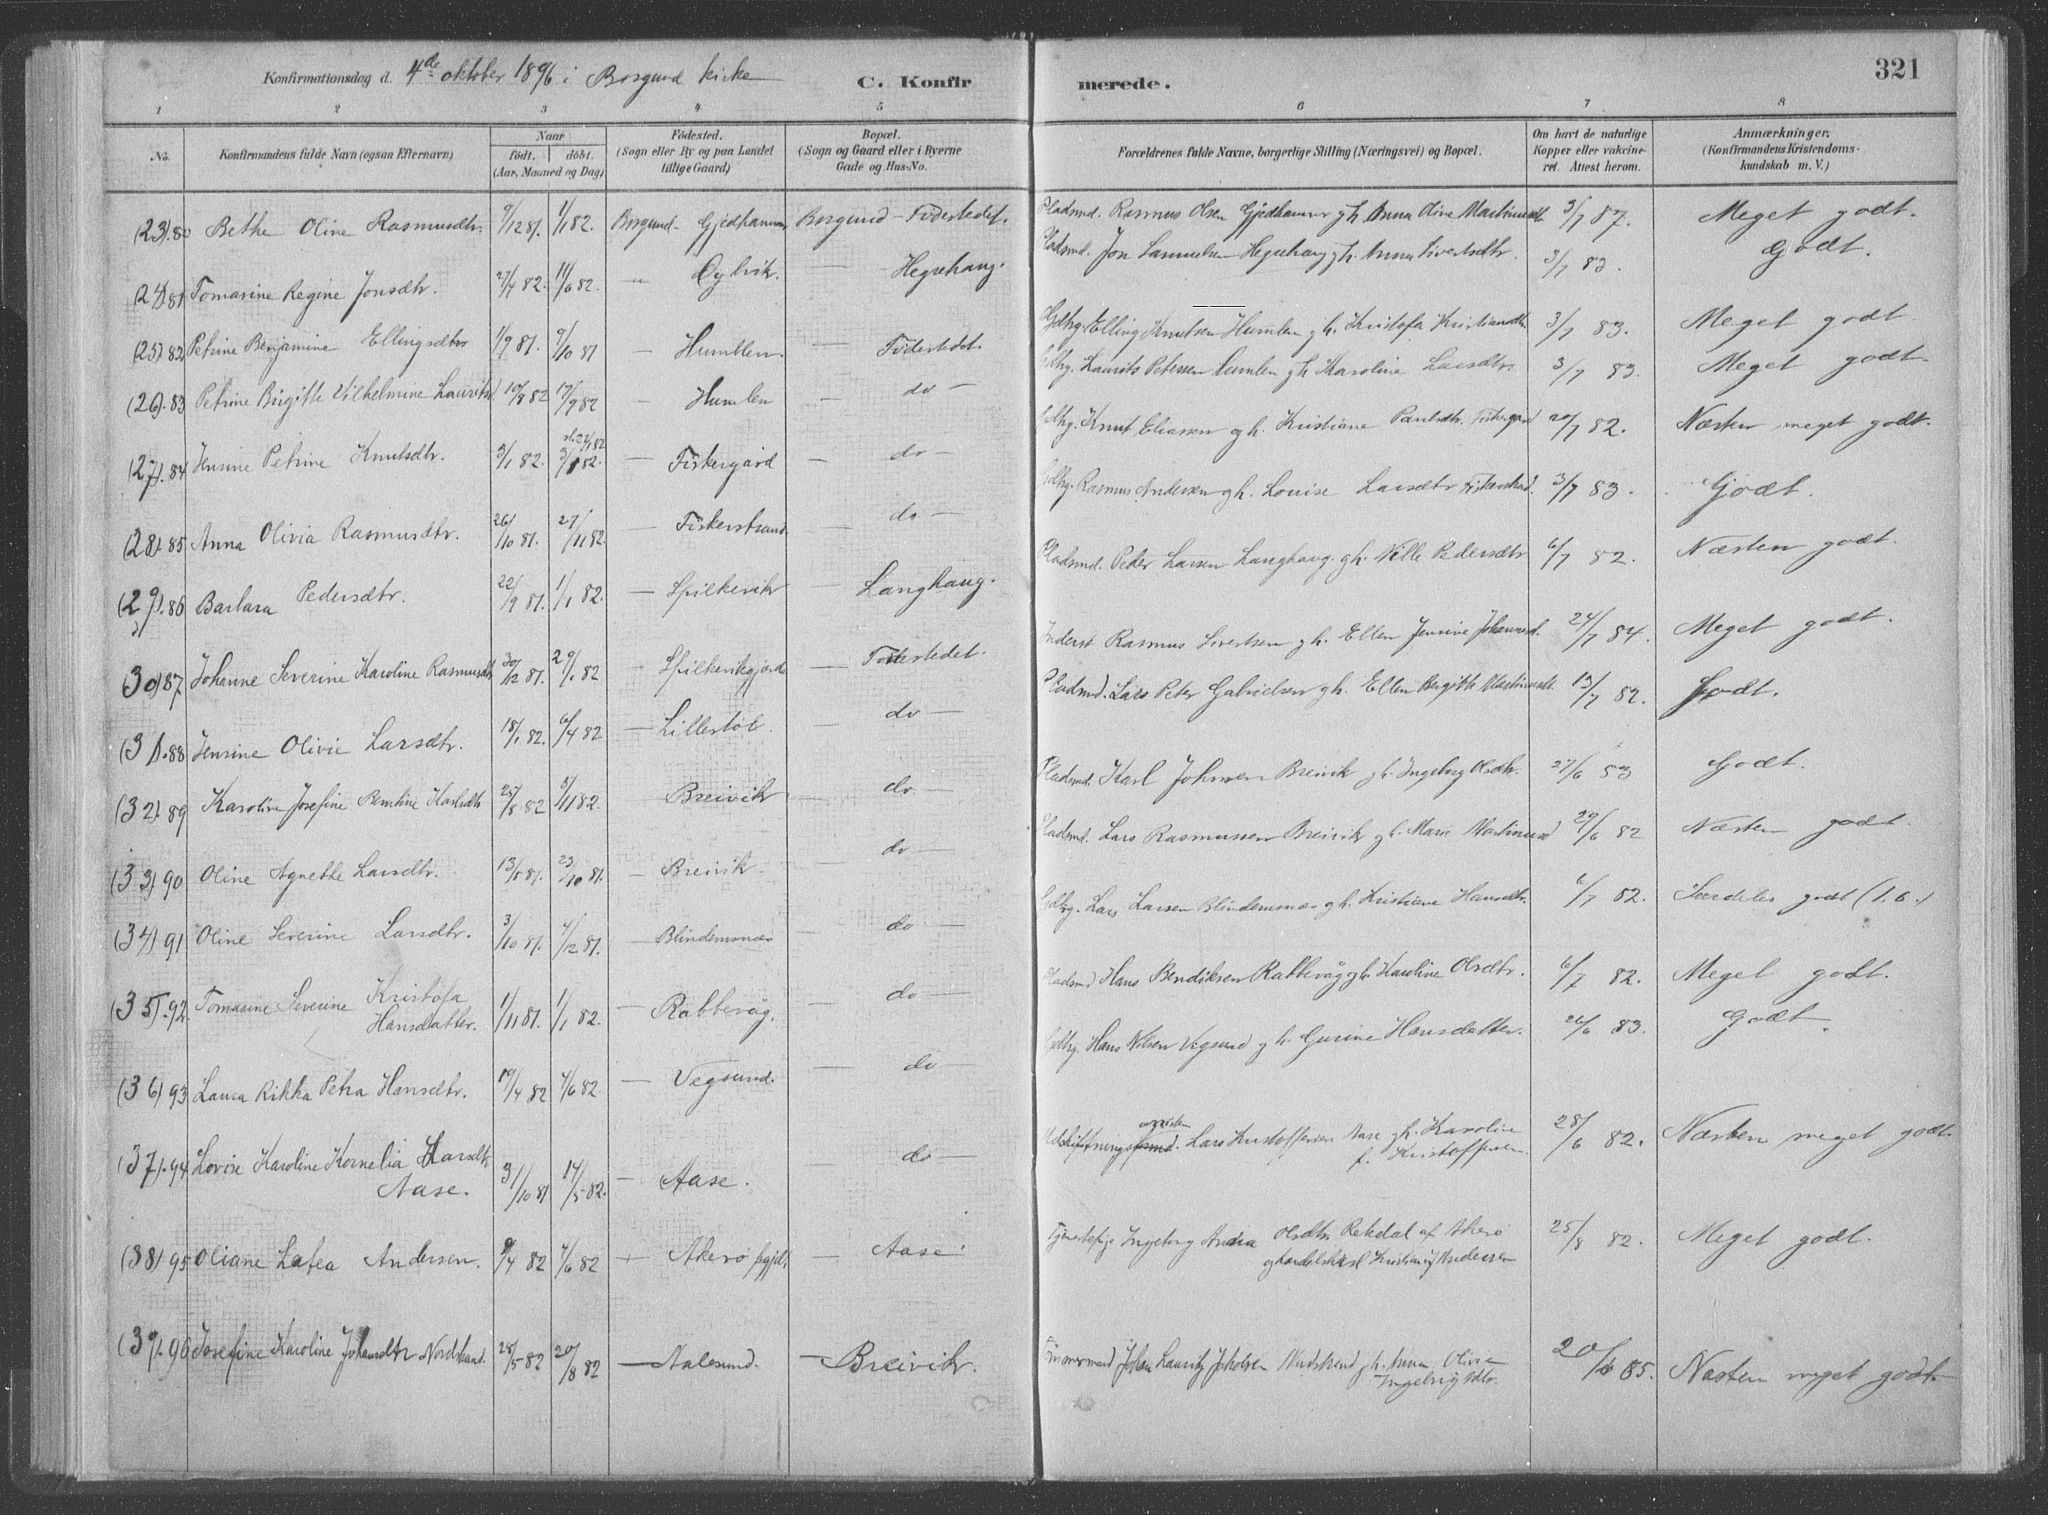 Konfirmationsdag d. 4de oktober 1896 i Borgund kirke
C. Konfirmerede.
321
1 2 3 4 5 6 7 8
No.
Konfirmandens fulde Navn (ogsaa Efternavn)
Naar
födt. döbt.
(Aar, Maaned og Dag)
Födested.
(Sogn eller By og paa Landet tillige Gaard)
Bopæl.
(Sogn og Gaard eller i Byerne Gade og Hus-No.
Forældrenes fulde Navne, borgerlige Stilling (Næringsvei) og Bopæl.
Om havt de naturlige Kopper eller vakcineret. Attest herom.
Anmærkninger.
(Konfirmandens Kristendomskundskab m. V.)
(23). 80 Bethe Oline Rasmusdtr. 9/12 81. 1/1 82. Borgund - Gjedhammer Borgund - Födestedet. Pladsmd. Rasmus Olsen Gjedhammer g h. Anna Oline Martinusdtr 3/7 87. Meget godt.
(24) 81 Tomasine Regine Jonsdtr. 27/4 82. 11/6 82. — — Hegrehaug. Pladsmd. Jon Samuelsen Hegrehaug g h. Anna Sivertsdtr. 3/7 83. Godt.
(25). 82 Petrine Benjamine Ellingsdtr 1/9 81. 9/10 81 — Humblen. — Födestedet. Gdbrg. Elling Knutsen Humlen g h. Kristofa Kristiansdtr. 3/7 83. Meget godt
(26). 83 Petrine Birgitte Vilhelmine Lauritsd. 10/8 82 17/9 82 — Humlen — do — Gdbrg. Laurits Petersen Humlen g h Karoline Larsdtr. 3/7 83. Meget godt.
(27). 84 Jensine Petrine Knutsdtr. 3/1 82. 3/1 82. — Fiskergård — do — Gdbrg. Knut Eliasen g h. Kristiane Paulsdtr. Fiskergård 20/7 82. Næsten meget godt.
(28). 85 Anna Olivia Rasmusdtr. 26/10 81. 27/11 82. — Fiskerstrand. do — Gdbrg. Rasmus Andersen g h. Louise Larsdtr Fiskerstrand. 3/7 83. Godt.
(29). 86 Barbara Pedersdtr. 22/9 81. 1/1 82. — Spilkevik — Langhaug. Pladsmd. Peder Larsen Langhaug. g h. Nille Pedersdtr 6/7 82. Næsten godt.
30) 87 Johanne Severine Karoline Rasmusdtr 30/12 81. 29/1 82 — Spilkevikgjerde — Födestedet. Inderst Rasmus Sivertsen g h. Ellen Jensine Johannesd. 24/7 84. Meget godt.
(31). 88 Jensine Olivie Larsdtr. 18/1 82. 6/4 82 — Lillestöl. — do — Pladsmd. Lars Peter Gabrielsen g h. Ellen Bergitte Martinusdtr. 13/7 82. Godt.
(32). 89 Karoline Josefine Berntine Karlsdtr 25/8 82 5/11 82. — Breivik — do — Pladsmd. Karl Johnsen Breivik g h. Ingeborg Olsdtr. 27/6 83 Godt.
(33) 90 Oline Agnethe Larsdtr. 13/8 81. 23/10 81. — Breivik — do — Pladsmd. Lars Rasmussen Breivik g h. Maris Martinusd 29/6 82 Næsten godt.
(34) 91 Oline Severine Larsdtr. 3/10 81. 4/12 81. — Blindemsnæs — do — Gdbrg. Lars Larsen Blindemsnæs g h. Kristiane Hansdtr. 6/7 82. Særdeles godt (1.6.)
(35). 92. Tomasine Severine Kristofa
Hansdatter. 1/11 81. 1/1 82. — Rabbevåg. — do — Pladsmd Hans Bendiksen Rabbevåg g h. Karoline Olsdtr. 6/7 82. Meget godt.
(36) 93 Laura Rikka Petra Hansdtr. 19/4 82 4/6 82. — Vegsund. — do — Gdbrg. Hans Nilsen Vegsund g h. Gurine Hansdatter. 26/6 83. Godt.
(37). 94 Lovise Karoline Kornelia Larsdtr
Aase. 31/10 81 14/5 82. — Aase. — do — Udskiftningsformd. Lars Kristoffersen Aase g h. Karoline
f. Kristoffersen. 28/6 82. Næsten meget godt.
(38) 95 Oliane Lafea Andersen. 9/4 82 4/6 82 — Akerö — Aase. Tjenestepige Ingeborg Andrea Olsdtr. Rekdal af Akerö
og handelskarl Kristian Andersen 25/8 82. Meget godt.
(39). 96 Josefine Karoline Johansdtr Nordstrand. 28/5 82 20/8 82 — Aalesund. — Breivik. Tömmermand Johan Lauritz Jakobsen Nordstrand g h. Anna Olivia
Ingebrigtsdtr. 20/6 85. Næsten meget godt.